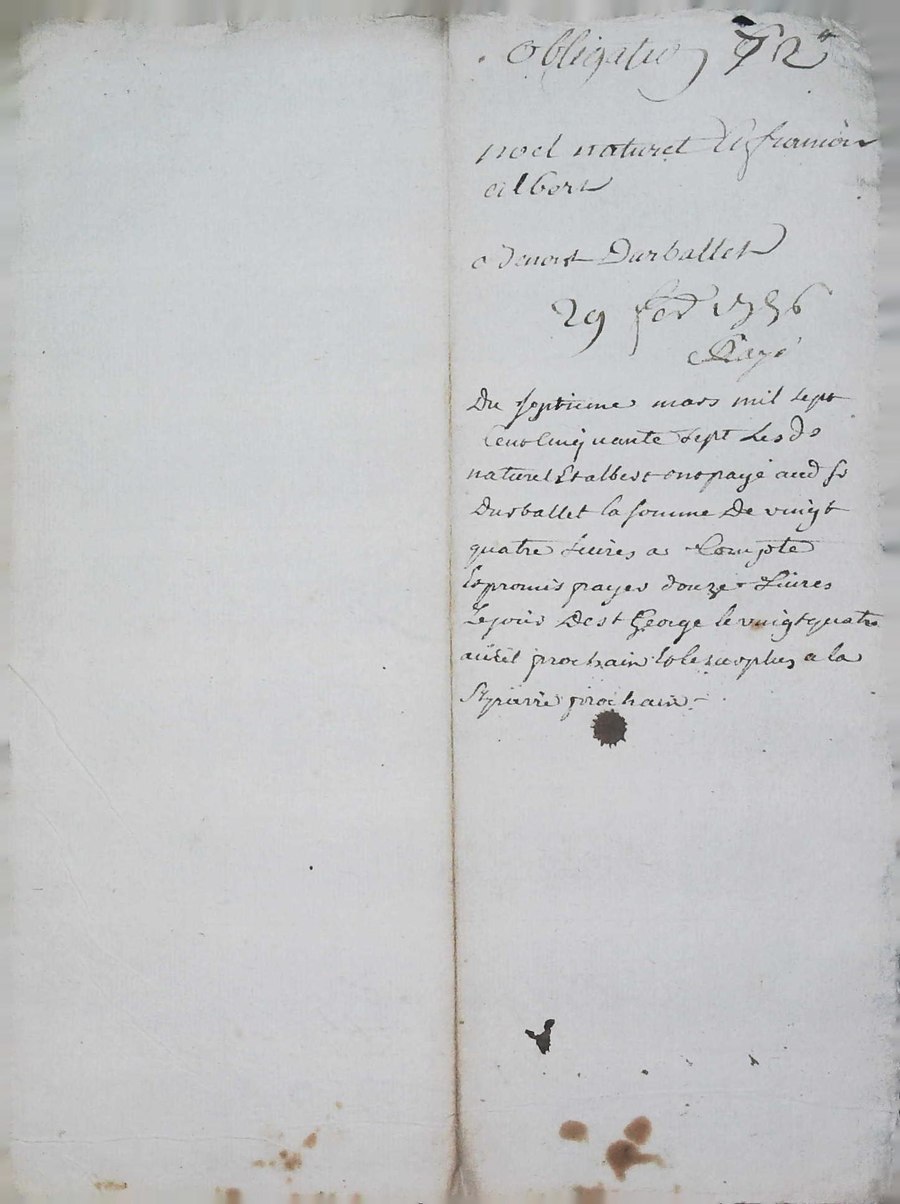 obligation 72#
noel naturel Et francois
albert
a Benoist Durballet
29 fev 1756
Payé
Du septieme mars mil sept
Cent cinquante sept Les ds
naturel Et albert ont payé aud sr
Durballet la somme De vingt
quatre Livres a Compte
Et promis payer douze Livres
Le jour De st George le vingt quatre
avril prochain Et le surplus a la
St prochain